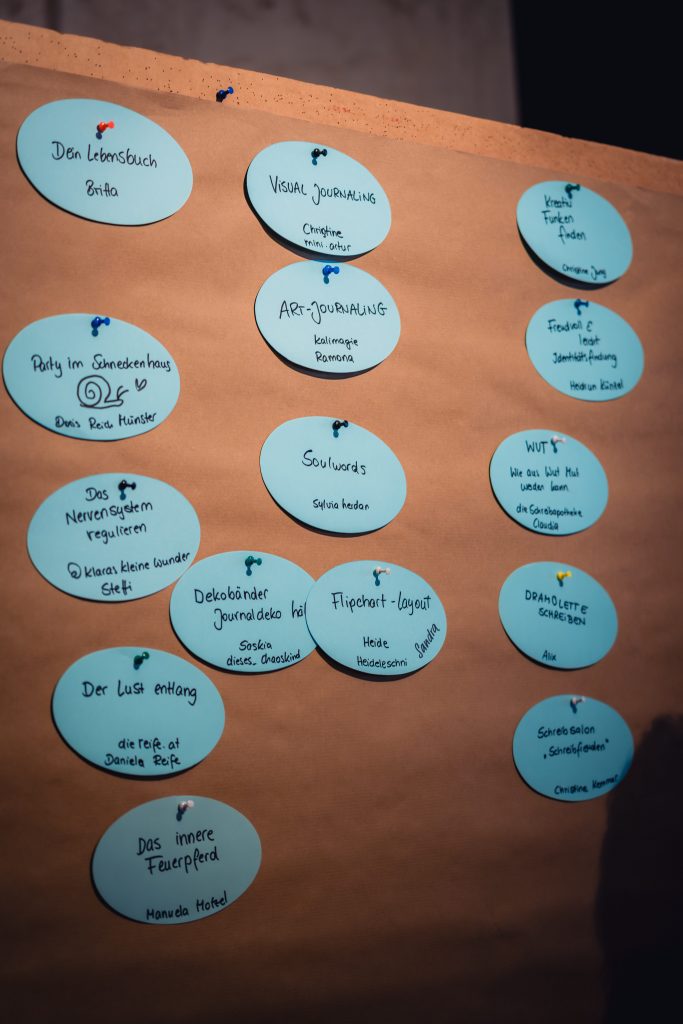 Dein Lebensbuch
Britta
Party im Schneckenhaus
Doris Reich Münster
Das
Nervensystem
regulieren
@klaras kleine wunder
Steffi
Der Lust entlang
die reife.at
Daniela Reife
Das innere
Feuerpferd
Manuela
VISUAL JOURNALING
Christine
mini.artur
ART-JOURNALING
kalimagie
Ramona
Soulwords
Sylvia
Dekobänder
Journaldeko
Saskia
dieses_chaoskind
Flipchart-layout
Heide
Heideleschni
Sandra
Kreativ
Funken
finden
Christine Jung
Freudvoll &
leicht
Identitätsfindung
Heidrun Künkel
WUT
Wie aus Wut Mut
werden kann
die Schreibapotheke
Claudia
DRAMOLETTE
SCHREIBEN
Alix
Schreibsalon
„Schreibfreuden"
Christine